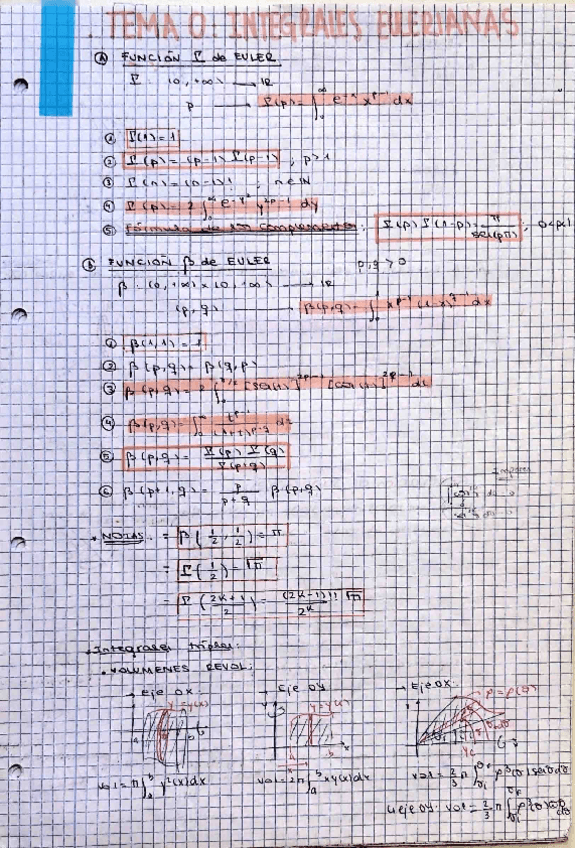 TEMA 0: INTEGRALES EULERIANAS
Ⓐ FUNCIÓN Γ de EULER
Γ : (0, +∞) → ℝ
p → Γ(p) = ∫₀^∞ e^-x x^p-1 dx
① Γ(1) = 1
② Γ(p) = (p-1) Γ(p-1) , p>1
③ Γ(n) = (n-1)! , n∈ℕ
④ Γ(p) = 2 ∫₀^∞ e^-y² y^2p-1 dy
⑤ Fórmula de los complementos: Γ(p) Γ(1-p) = π / sen(pπ) ; 0<p<1
Ⓑ FUNCIÓN β de EULER p,q > 0
β : (0, +∞) x (0, +∞) → ℝ
(p,q) → β(p,q) = ∫₀^1 x^p-1 (1-x)^q-1 dx
① β(1,1) = 1
② β(p,q) = β(q,p)
③ β(p,q) = 2 ∫₀^π/2 [sen(t)]^2p-1 [cos(t)]^2q-1 dt
④ β(p,q) = ∫₀^∞ t^p-1 / (1+t)^p+q dt
⑤ β(p,q) = Γ(p) Γ(q) / Γ(p+q)
⑥ β(p+1,q) = p / p+q β(p,q)
Impares
• NOTAS: = β(1/2, 1/2) = π
= Γ(1/2) = √π
= Γ(2k+1 / 2) = (2k-1)!! √π / 2^k
• Integrales triples:
• VOLUMENES REVOL:
→ Eje OX: → Eje OY → Eje OX:
y = y(x) y = y(x) ρ = ρ(θ)
vol = π ∫ₐ^b y²(x) dx vol = 2π ∫ₐ^b x y(x) dx vol = 2/3 π ∫ ρ³(θ) senθ dθ
↳ eje OY: vol = 2/3 π ∫ ρ³(θ) cosθ dθ